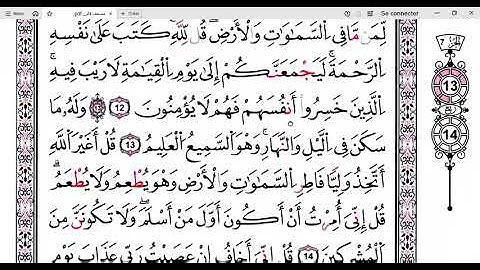 Se connecter
لِّمَن مَّا فِي السَّمَاوَاتِ وَالْأَرْضِ قُل لِّلَّهِ كَتَبَ عَلَىٰ نَفْسِهِ
الرَّحْمَةَ لَيَجْمَعَنَّكُمْ إِلَىٰ يَوْمِ الْقِيَامَةِ لَا رَيْبَ فِيهِ
الَّذِينَ خَسِرُوا أَنفُسَهُمْ فَهُمْ لَا يُؤْمِنُونَ 12 وَلَهُ مَا
سَكَنَ فِي اللَّيْلِ وَالنَّهَارِ وَهُوَ السَّمِيعُ الْعَلِيمُ 13 قُلْ أَغَيْرَ اللَّهِ
أَتَّخِذُ وَلِيًّا فَاطِرِ السَّمَاوَاتِ وَالْأَرْضِ وَهُوَ يُطْعِمُ وَلَا يُطْعَمُ
قُلْ إِنِّي أُمِرْتُ أَنْ أَكُونَ أَوَّلَ مَنْ أَسْلَمَ وَلَا تَكُونَنَّ مِنَ
الْمُشْرِكِينَ 14 قُلْ إِنِّي أَخَافُ إِنْ عَصَيْتُ رَبِّي عَذَابَ يَوْمٍ
13
14